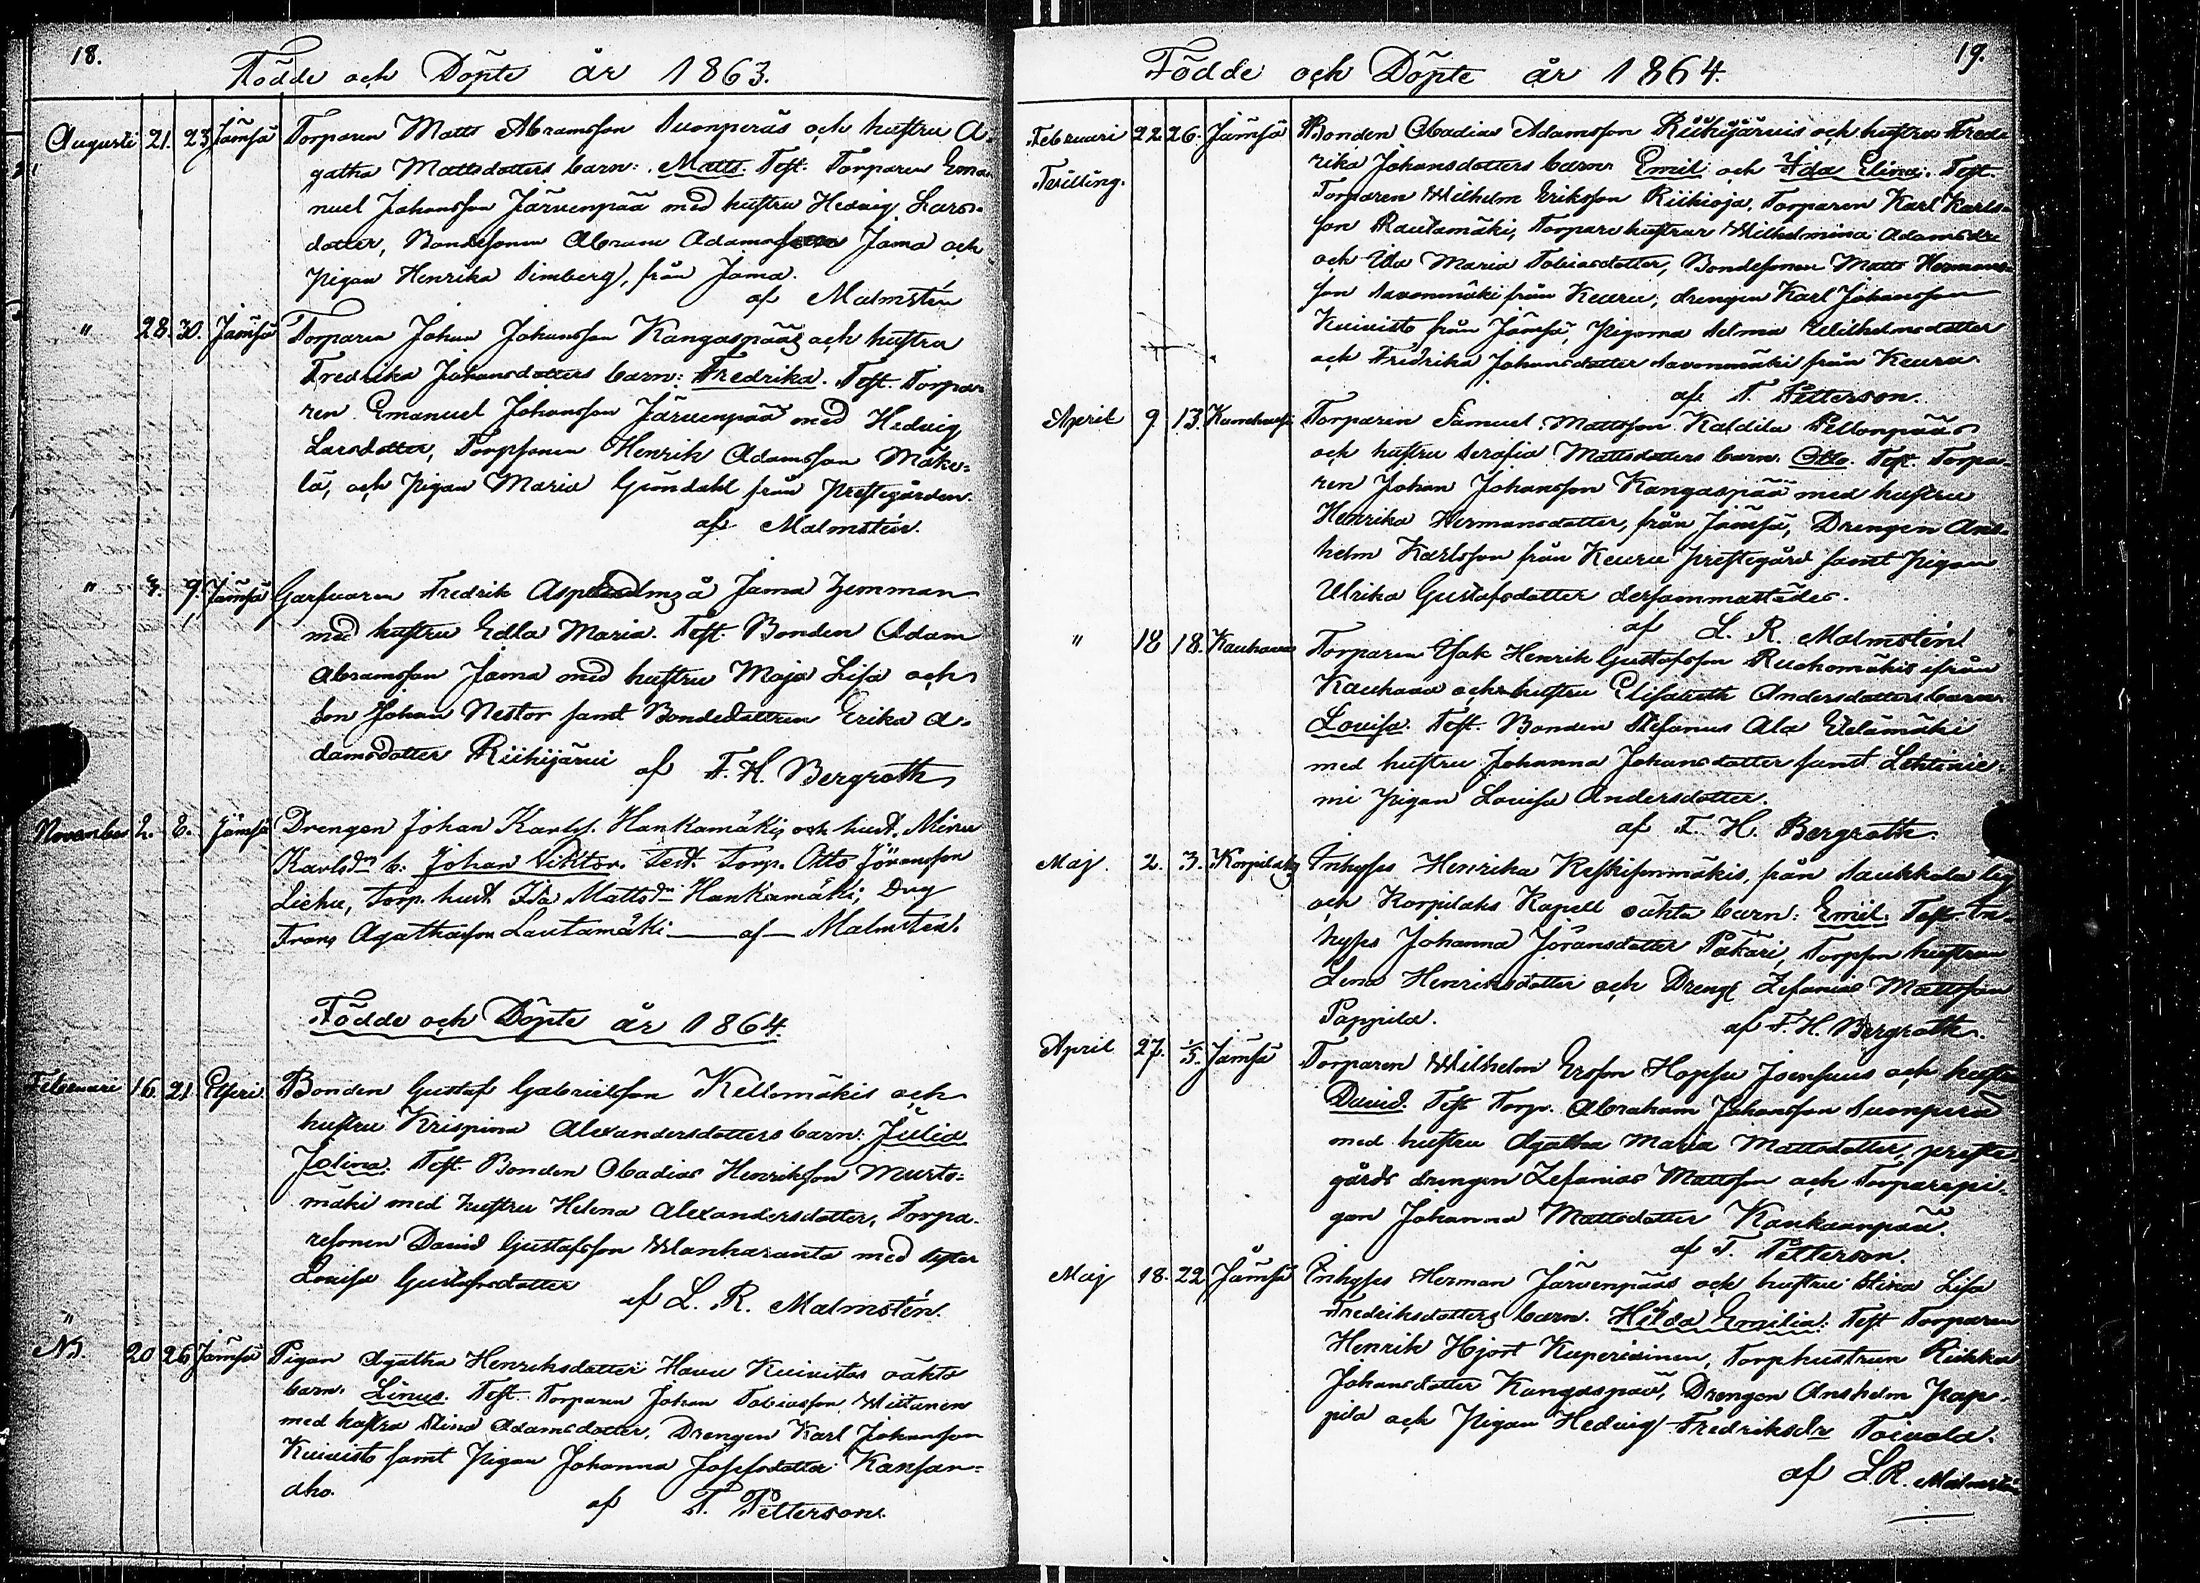 18.
Födde och Döpte år 1863.
Augusti 21. 23 Jämsä Torparen Matts Abramsson Suonperäs och hustru A-
gatha Mattsdotters barn: Matts. Test. Torparen Ema-
nuel Johansson Järvenpää med hustru Hedvig Lars-
dotter, Bondesonen Abram Adamsson Jama och
pigan Henrika Simberg, från Jama.
af Malmstén
" 28. 30. Jämsä Torparen Johan Johansson Kangaspääs och hustru
Fredrika Johansdotters barn: Fredrika. Test. Torpa-
ren Emanuel Johansson Järvenpää med Hedvig
Larsdotter, Torpsonen Henrik Adamsson Mäke-
lä, och pigan Maria Gröndahl från prestegården.
af Malmstén.
" 9. Jämsä Garfvaren Fredrik å Jama hemman
med hustru Edla Maria. Test. Bonden Adam
Abramsson Jama med hustru Maja Lisa och
son Johan Nestor samt Bondedottren Erika A-
damsdotter Riihijärvi af F. H. Bergroth
November 2. 8. Jämsä Drengen Johan Karls. Hankamäkis och hust. Mina
Karlsdr b. Johan Viktor. Test. Torp. Otto Jöransson
Liehu, Torp. hust. Ida Mattsdr Hankamäki, Dng
Frans Agathasson Lautamäki — af — Malmstén.
Födde och Döpte år 1864.
Februari 16. 21 Etseri Bonden Gustaf Gabrielsson Kellomäkis och
hustru Krispina Alexandersdotters barn: Julia
Jolina. Test. Bonden Obadias Henriksson Murto-
mäki med hustru Helena Alexandersdotter, Torpa-
resonen David Gustafsson Wanharanta med syster
Lovisa Gustafsdotter
af L. R. Malmstén.
"
N3. 20 26 Jämsä Pigan Agatha Henriksdotter Havu Kuivistos oäkta
barn. Linus. Test. Torparen Johan Tobiasson Wiitanen
med hustru Stina Adamsdotter. Drengen Karl Johansson
Kuivisto samt pigan Johanna Josefsdotter Kansan-
aho.
af T. Petterson.
19.
Födde och Döpte år 1864.
Februari 22. 26. Jämsä Bonden Obadias Adamsson Riihijärvis och hustru Fred-
Tvilling. rika Johansdotters barn Emil och Ida Elina. Test.
Torparen Wilhelm Eriksson Riihioja, Torparen Karl Karls-
son Rautamäki, Torpare hustrur Wilhelmina Adamsdr
och Ida Maria Tobiasdotter, Bondesonen Matts Hermans-
son Savonmäki från Keuru, drengen Karl Johansson
Kuivisto från Jämsä, pigorna Selma Wilhelmsdotter
och Fredrika Johansdotter Savonmäki från Keuru.
af T. Petterson.
April 9. 13. Torparen Samuel Mattsson Pellonpääs
och hustru Serafia Mattsdotters barn. Otto. Test. Torpa-
ren Johan Johansson Kangaspää med hustru
Henrika Hermansdotter, från Jämsä, Drengen Ans-
helm Karlsson från Keuru prestegård samt pigan
Ulrika Gustafsdotter dersammastädes.
af L. R. Malmstén
" 18 18. Kauhava Torparen Isak Henrik Gustafsson Ruohomäkis ifrån
Kauhava och hustru Elisabeth Andersdotters barn.
Lovisa. Test. Bonden Stefanus Ala
med hustru Johanna Johansdotter samt Lehtinie-
mi pigan Lovisa Andersdotter.
af F. H. Bergroth.
Maj 2. 3. Korpilahti Inhyses Henrika Keskisenmäkis, från Saukkola by
och Korpilahs Kapell oäkta barn: Emil. Test. In-
hyses Johanna Jöransdotter Pakari, Torpson hustrun
Lena Henriksdotter och Dreng Zefanias Mattsson
Pappila.
af F. H. Bergroth.
April 27. 1/5. Jämsä Torparen Wilhelm Ersson Hopsu Joensuus och hustru
David. Test Torp. Abraham Johansson Suonperä
med hustru Agatha Maria Mattsdotter, preste-
gårds drengen Zefanias Mattsson och Torparepi-
gan Johanna Mattsdotter Kankaanpää.
af T. Petterson.
Maj 18. 22. Jämsä Inhyses Herman Järvenpääs och hustru Stina Lisa
Fredriksdotters barn. Hilda Emilia. Test Torparen
Henrik Hjort Kuperiainen, Torphustrun Riikka
Johansdotter Kangaspää, Drengen Anshelm Pap-
pila och pigan Hedvig Fredriksdr Toivola.
af L.R. Malmstén